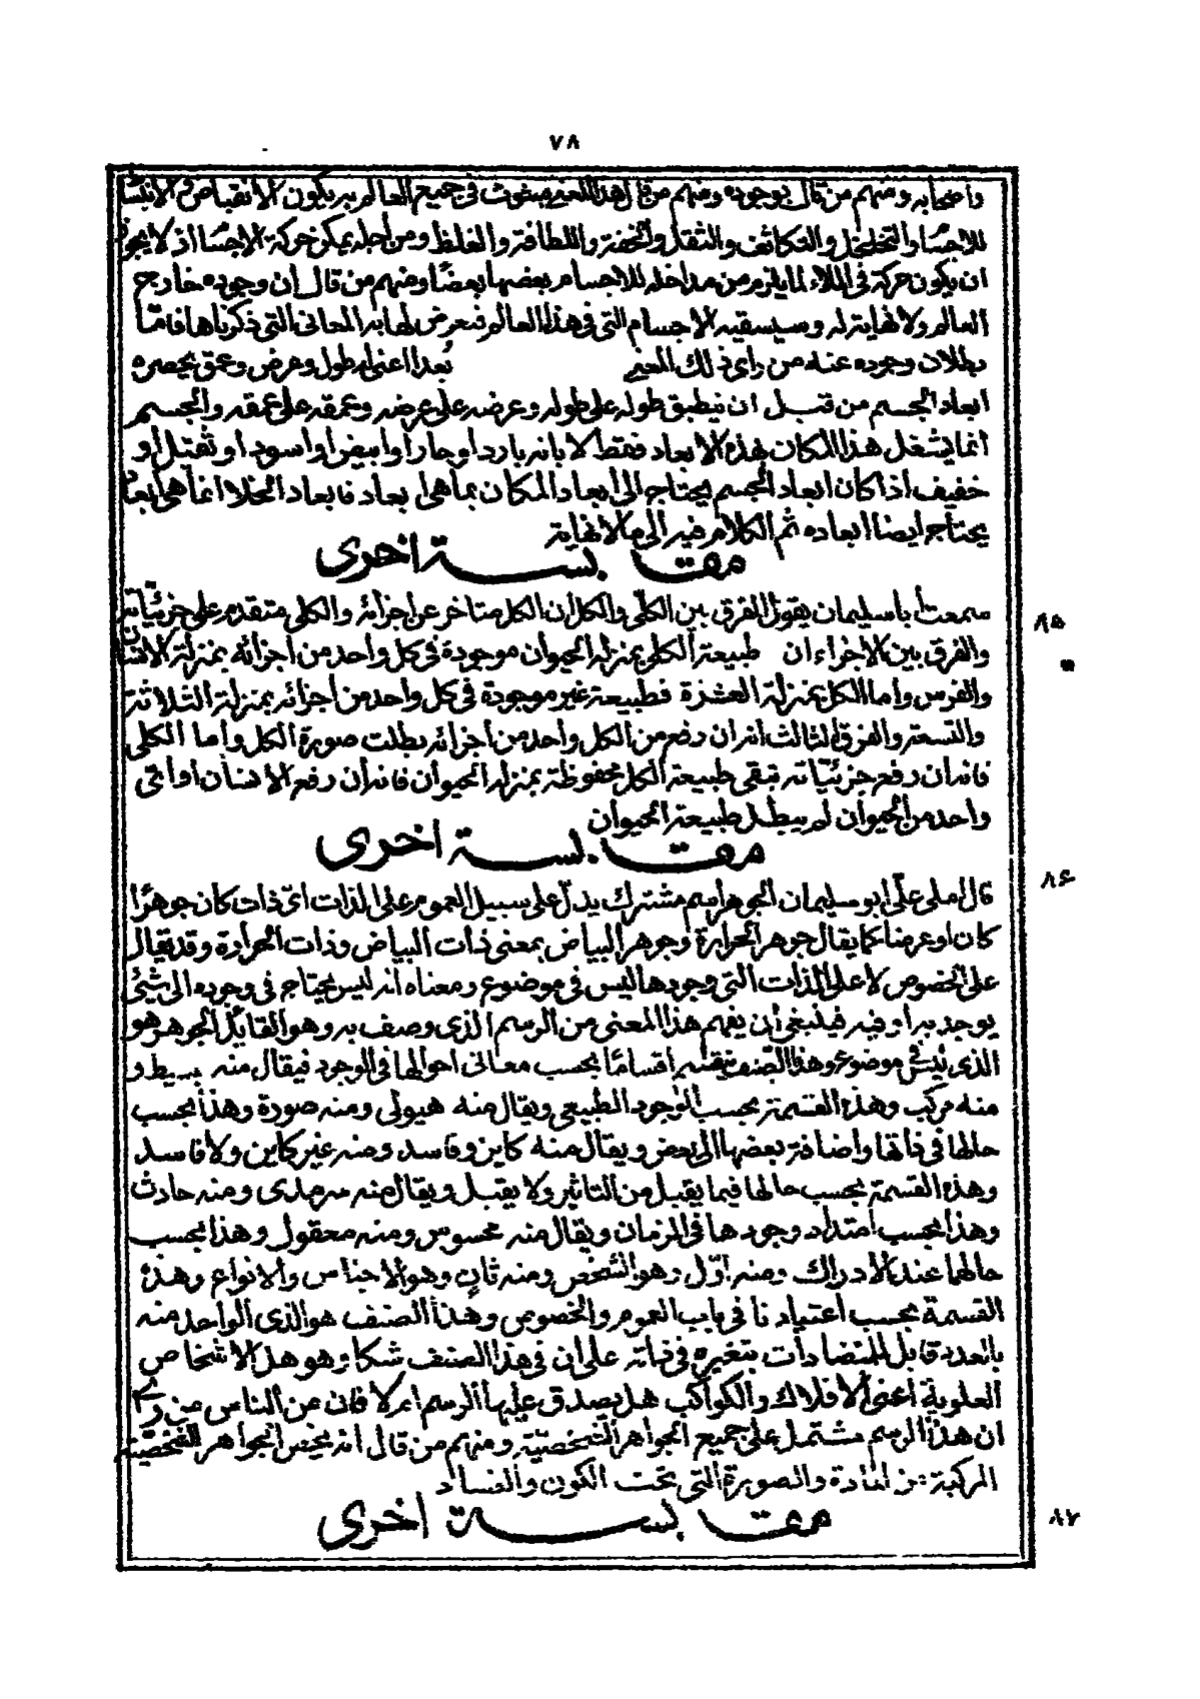 ٧٨
واصحابه ومنهم من قال بوجوده ومنهم من قال هذا المعنى مبثوث في جميع العالم به يكون الانقباض والانبسا
للاجسا والتخلخل والتكاثف والثقل والخفة واللطافة والغلظ ومن اجله يمكن حركة الاجسا اذ لا يجوز
ان يكون حركة في الملاء لما يلزم من مداخله للاجسام بعضها بعضا ومنهم من قال ان وجوده خارج
العالم ولا نهاية له وسيسقيه الاجسام التي في هذا العالم فيعرض لها به المعاني التي ذكرناها فامّا
بطلان وجوده عنه من راى ذلك المعنى بُعدا اعني له طول وعرض وعمق يحصره
ابعاد الجسم من قبل ان ينطبق طوله على طوله وعرضه على عرضه وعمقه على عمقه والجسم
انما يشغل هذا المكان بهذه الابعاد فقط لا بانه بارد او حار او ابيض او اسود او ثقيل او
خفيف اذا كان ابعاد الجسم يحتاج الى ابعاد المكان بما هي ابعاد فابعاد الخلا انما هي ابعاد
يحتاج ايضا ابعاده ثم الكلام فيه الى ما لا نهاية
مقابسة اخرى
٨٥ سمعت أبا سليمان يقول الفرق بين الكلّي والكل ان الكل متاخر عن اجزائه والكلي متقدم على جزئيّاته
والفرق بين الاجزاء ان طبيعة الكلي بمنزلة الحيوان موجودة في كل واحد من اجزائه بمنزلة الانسان
والفرس واما الكل بمنزلة العشرة فطبيعة غير موجودة في كل واحد من اجزائه بمنزلة الثلاثة
والتسعة والفرق الثالث انه ان رفع من الكل واحد من اجزائه بطلت صورة الكل واما الكلي
فانه ان رفع جزئيّاته تبقى طبيعة الكل محفوظة بمنزلة الحيوان فانه ان رفع الانسان او ايّ
واحد من الحيوان لم يبطل طبيعة الحيوان
مقابسة اخرى
٨٦ قال املى علّى ابو سليمان الجوهر اسم مشترك يدلّ على سبيل العموم على الذات ايّ ذات كان جوهرًا
كان او عرضا كما يقال جوهر الحرارة وجوهر البياض بمعنى ذات البياض وذات الحرارة وقد يقال
على الخصوص لا على الذات التي وجودها ليس في موضوع ومعناه انه ليس يحتاج في وجوده الى شئ
يوجد به او فيه فينبغي أن يفهم هذا المعنى من الرسم الذي وصف به وهو القايل الجوهر هو
الذي ليس في موضوع وهذا الصنف ينقسم أقسامًا بحسب معاني احوالها في الوجود فيقال منه بسيط و
منه مركّب وهذه القسمة بحسب الوجود الطبيعي ويقال منه هيولى ومنه صورة وهذا بحسب
حالها في ذاتها واضافة بعضها الى بعض ويقال منه كاين وفاسد ومنه غير كاين ولا فاسد
وهذه القسمة بحسب حالها فيما يقبل من التاثير ولا يقبل ويقال منه سرمدى ومنه حادث
وهذا بحسب امتداد وجودها في الزمان ويقال منه محسوس ومنه معقول وهذا بحسب
حالها عند الادراك ومنه اوّل وهو الشخص ومنه ثانٍ وهو الاجناس والانواع وهذه
القسمة بحسب اعتبادنا في باب العموم والخصوص وهذا الصنف هو الذي الواحد منه
بالعدد قابل للمتضادات بتغيره في ذاته على ان في هذا الصنف شكا وهو هل الاشخاص
العلوية اعني الافلاك والكواكب هل يصدق عليها الرسم ام لا فان من الناس من راى
ان هذا الرسم مشتمل على جميع الجواهر الشخصيّة ومنهم من قال انه يخص الجواهر الشخصيّة
المركبة من المادة والصورة التي تحت الكون والفساد
مقابسة اخرى
٨٧